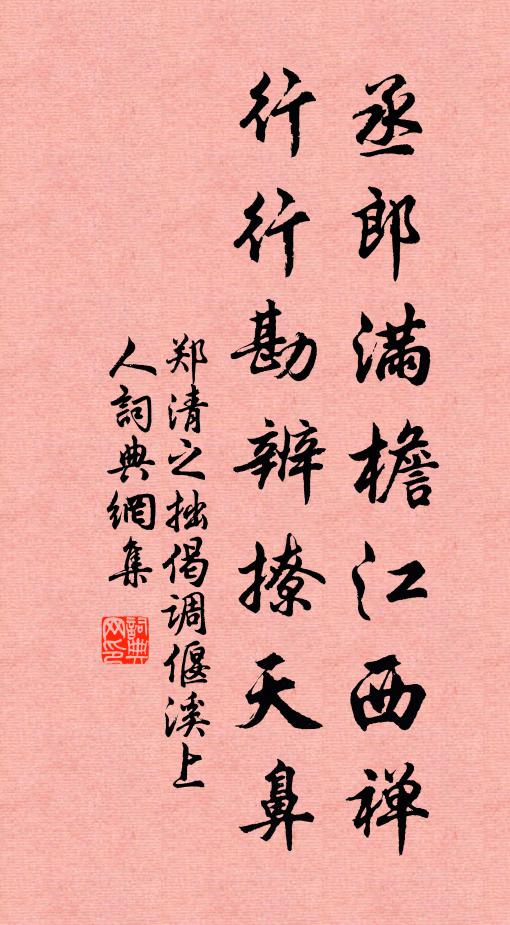 丞郎满檐江西禅
行行勘辨撩天鼻
郑清之拙偈调偃溪上
人詞典網集
詞典网印